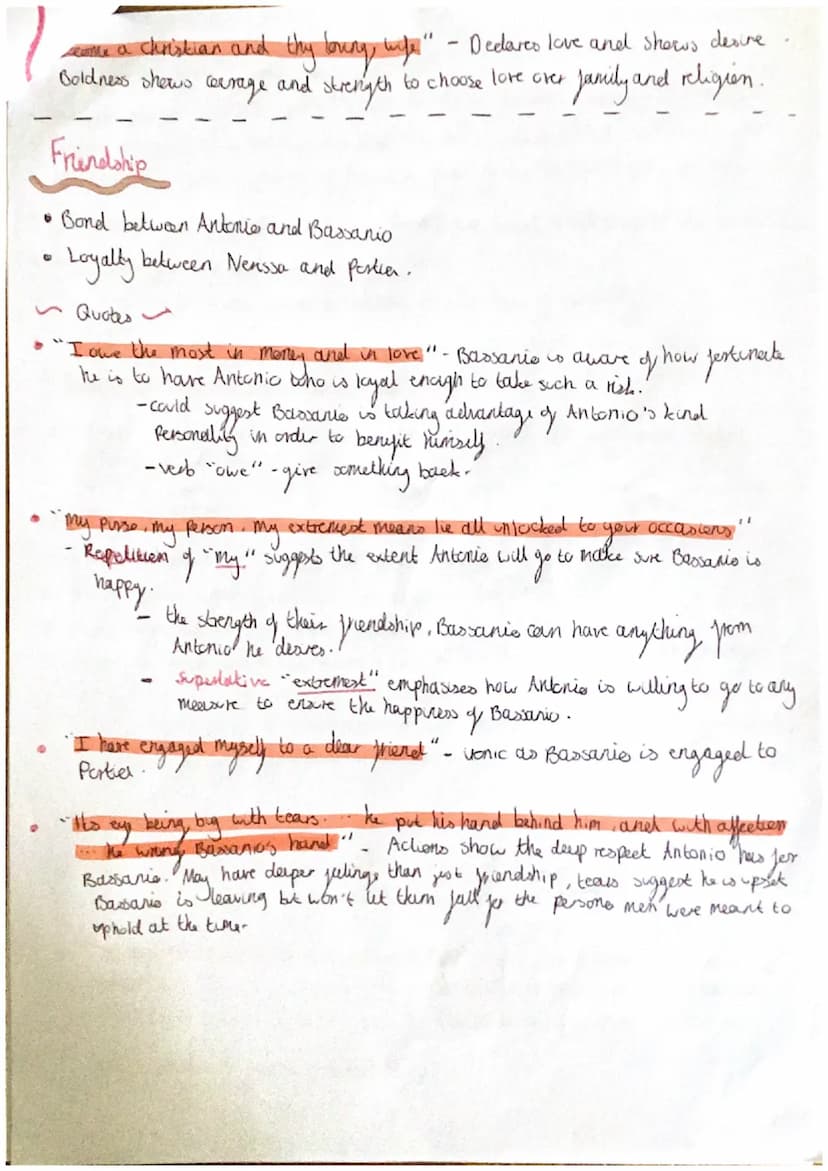 become a Christian and thy loving wife" - Declares love and shows desire.
Boldness shows courage and strength to choose love over family and religion.
Friendship
• Bond between Antonio and Bassanio
• Loyalty between Nerissa and Portia.
~ Quotes ~
• "I owe the most in money and in love" - Bassanio is aware of how fortunate
he is to have Antonio who is loyal enough to take such a risk.
- could suggest Bassanio is taking advantage of Antonio's kind
personality in order to benefit himself.
- verb "owe" - give something back.
• "My purse, my person, my extremest means lie all unlocked to your occasions"
- Repetition of "my" suggests the extent Antonio will go to make sure Bassanio is
happy.
- the strength of their friendship, Bassanio can have anything from
Antonio he desires.
- Superlative "extremest" emphasises how Antonio is willing to go to any
measure to ensure the happiness of Bassanio.
• "I have engaged myself to a dear friend" - ironic as Bassanio is engaged to
Portia.
• "His eye being big with tears... he put his hand behind him, and with affection
... he wrung Bassanio's hand" - Actions show the deep respect Antonio has for
Bassanio. May have deeper feelings than just friendship, tears suggest he is upset
Bassanio is leaving but won't let them fall for the persona men were meant to
uphold at the time.